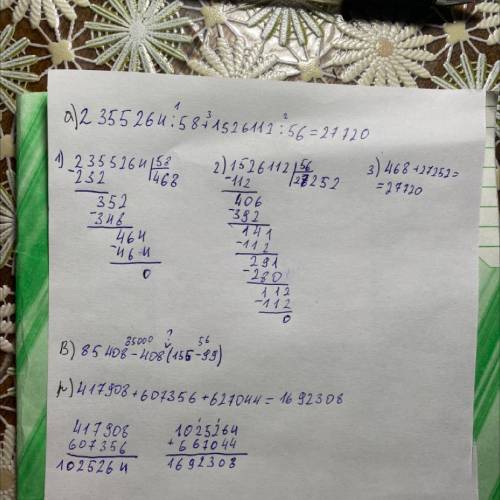 а) 2355264 : 58 + 1526112 : 56 = 27720
1 3 2
1) 2355264 | 58
-232 468
352
-348
464
-464
0
2) 1526112 | 56
-112 27252
406
-392
141
-112
291
-280
112
-112
0
3) 468 + 27252 =
= 27720
35000 ? 56
в) 85408 - 408 (155 - 99)
417908 + 607356 + 627044 = 1692308
417908
607356
1025264
1025264
+ 667044
1692308